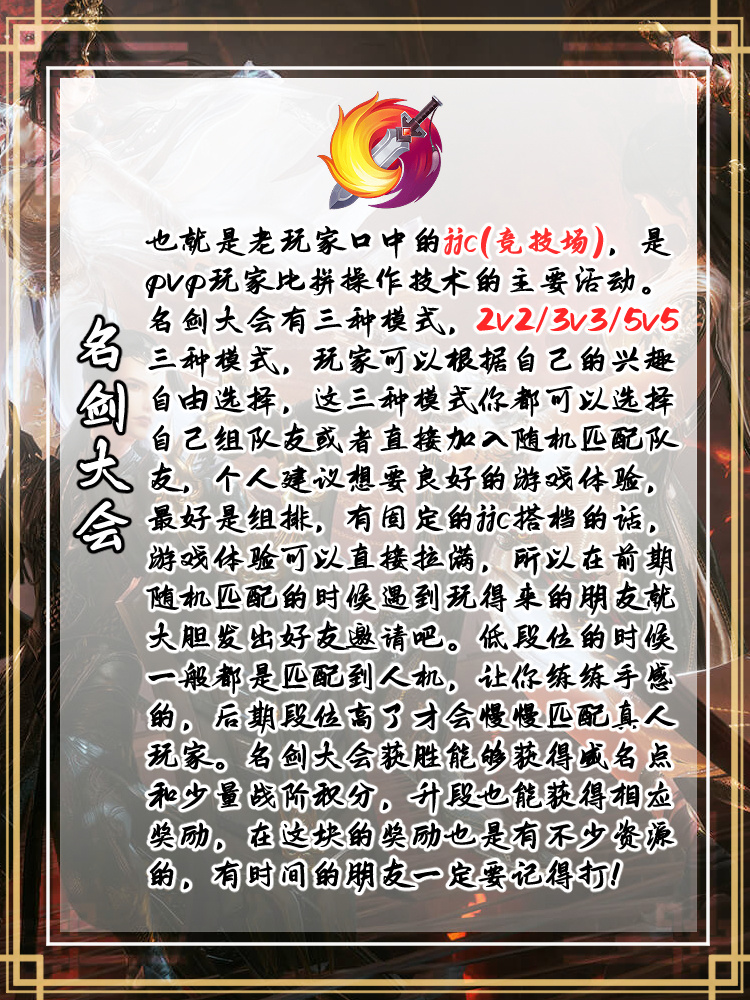 名剑大会
也就是老玩家口中的jjc(竞技场)，是
pvp玩家比拼操作技术的主要活动。
名剑大会有三种模式，2v2/3v3/5v5
三种模式，玩家可以根据自己的兴趣
自由选择，这三种模式你都可以选择
自己组队友或者直接加入随机匹配队
友，个人建议想要良好的游戏体验，
最好是组排，有固定的jjc搭档的话，
游戏体验可以直接拉满，所以在前期
随机匹配的时候遇到玩得来的朋友就
大胆发出好友邀请吧。低段位的时候
一般都是匹配到人机，让你练练手感
的，后期段位高了才会慢慢匹配真人
玩家。名剑大会获胜能够获得威名点
和少量战阶积分，升段也能获得相应
奖励，在这块的奖励也是有不少资源
的，有时间的朋友一定要记得打！